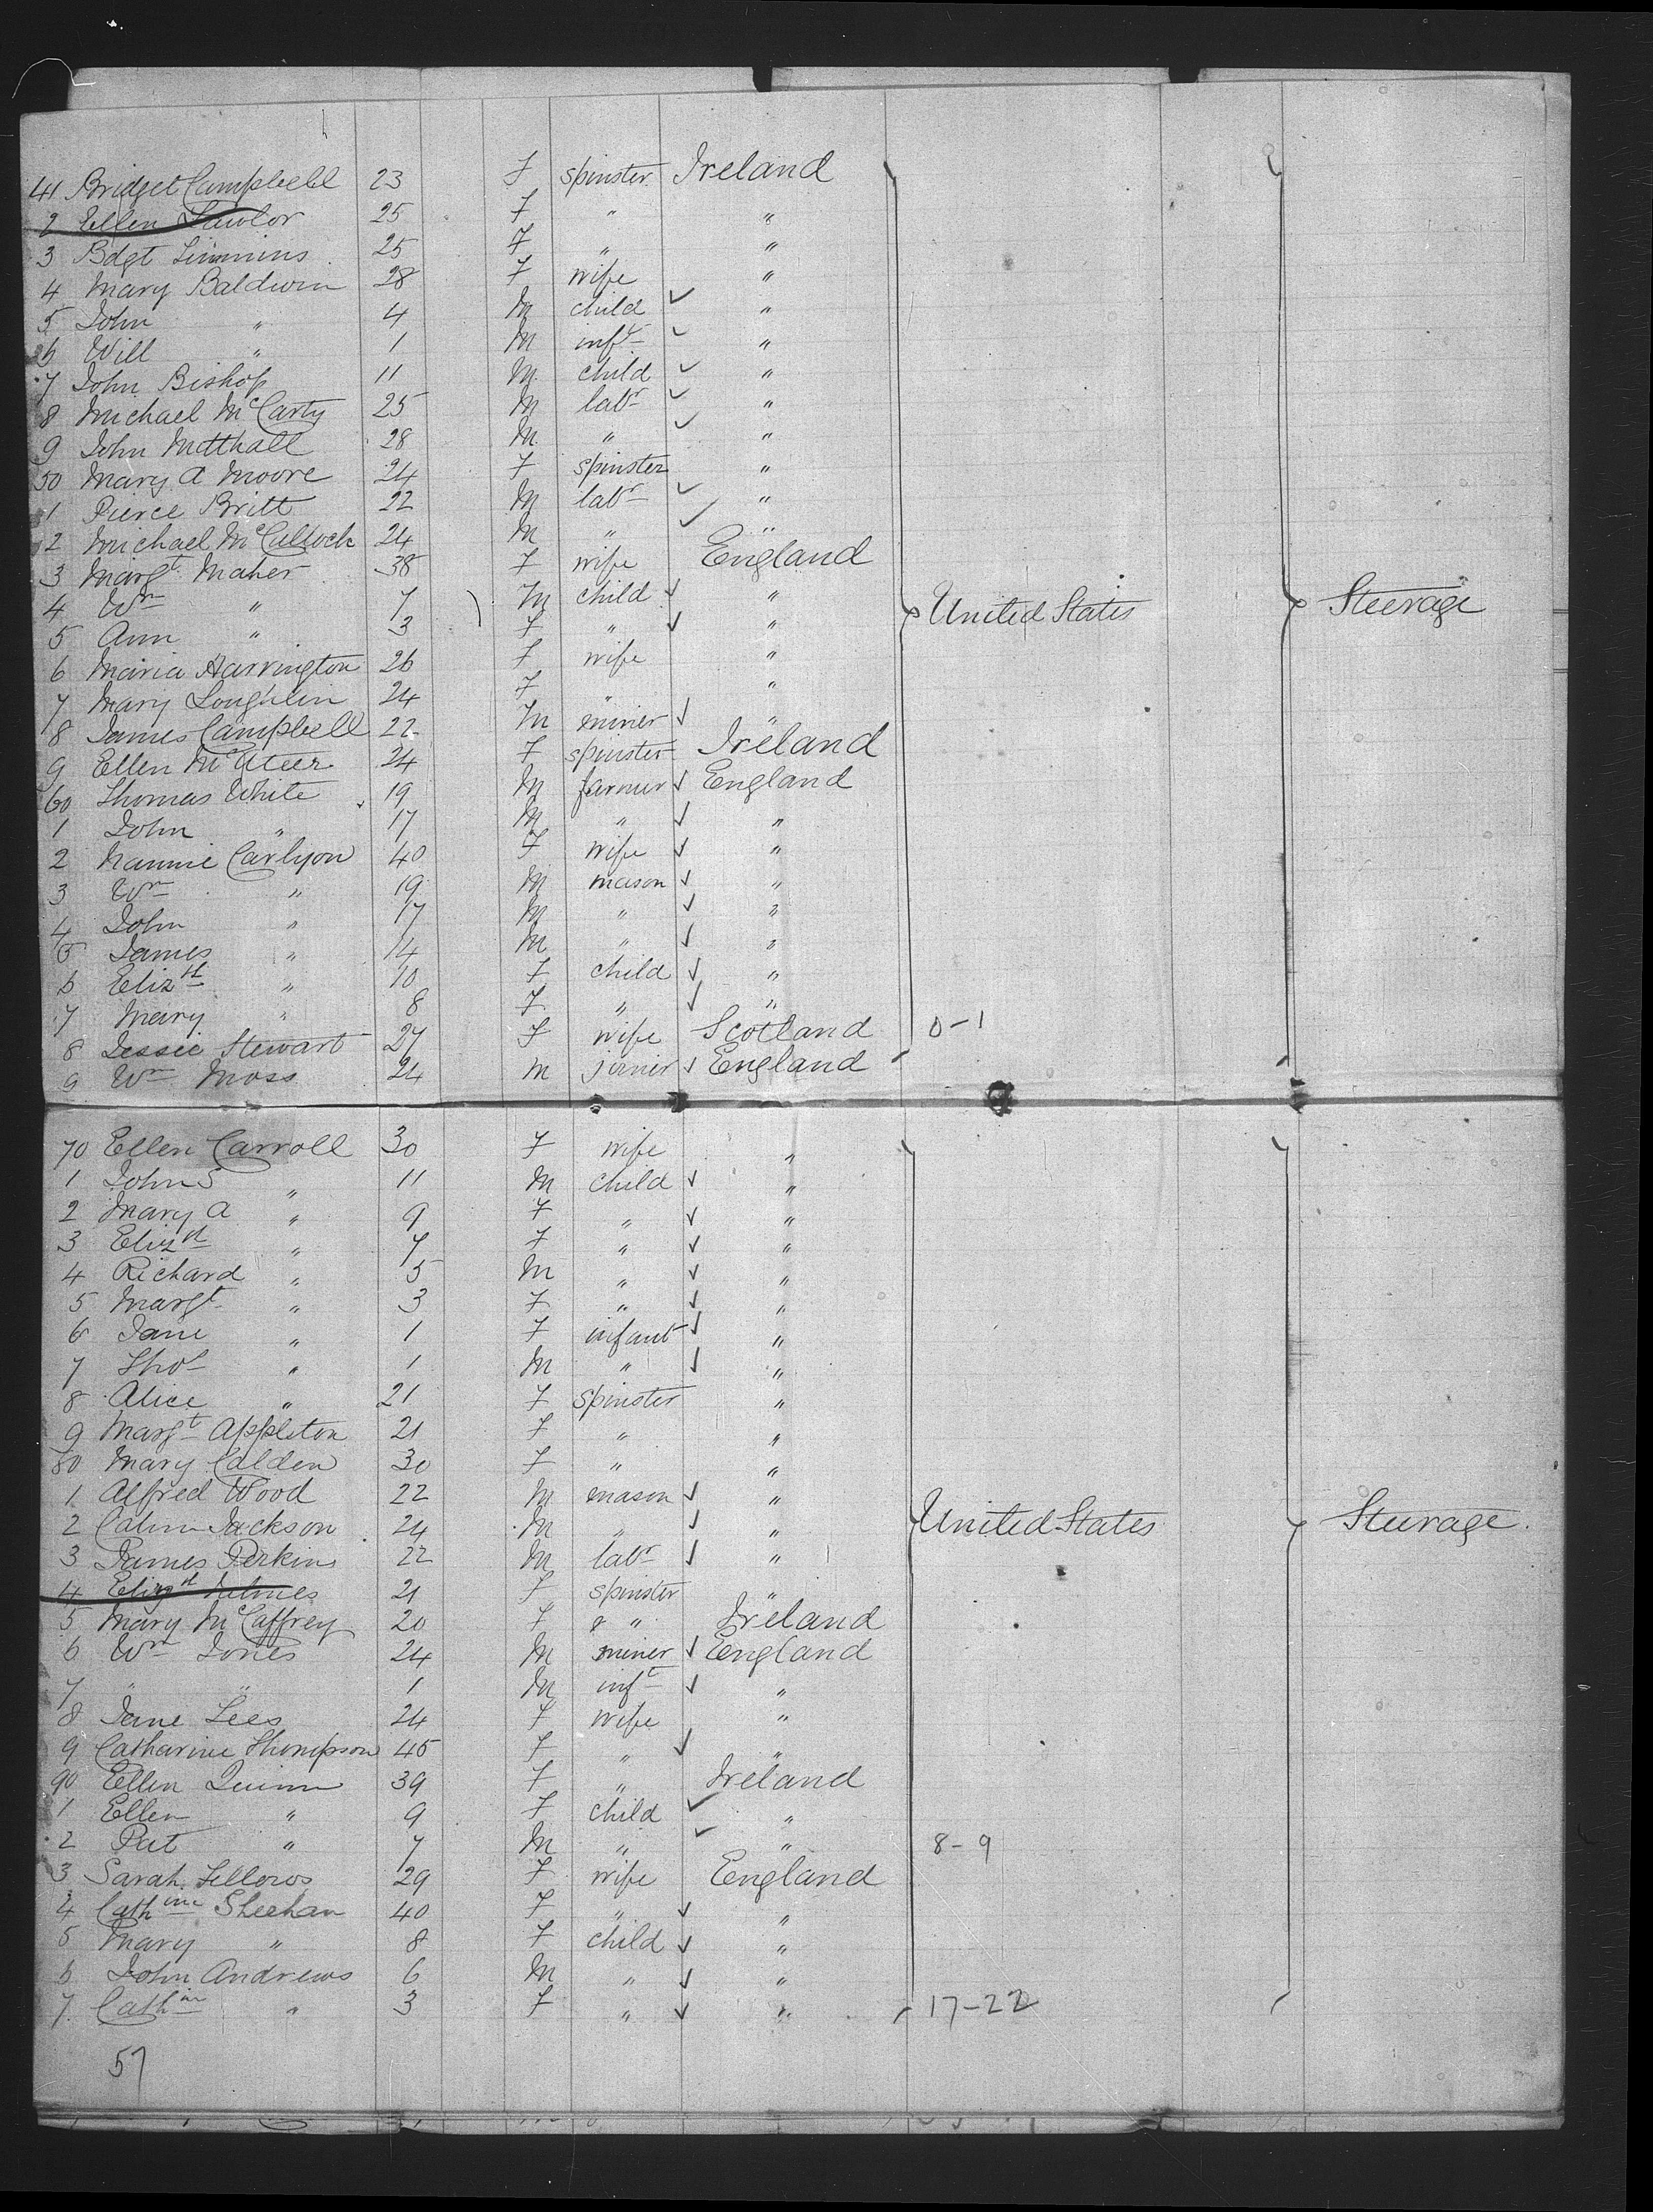 41 Bridget Campbell 23 F spinster Ireland
2 Ellen Lawlor 25 F " "
3 Bdgt Simmins 25 F " "
4 Mary Baldwin 28 F wife "
5 John " 4 M child ✓ "
6 Will " 1 M inft ✓ "
7 John Bishop 11 M child ✓ "
8 Michael McCarty 25 M labr ✓ "
9 John 28 M " ✓ "
50 Mary A Moore 24 F spinster "
1 Pierce Britt 22 M labr ✓ "
2 Michael McCulloch 24 M " ✓ "
3 Margt Maher 38 F wife England
4 Wm " 7 M child ✓ " United States Steerage
5 Ann " 3 F " ✓ "
6 Maria Harrington 26 F wife "
7 Mary Loughlin 24 F " "
8 James Campbell 22 M miner ✓ "
9 Ellen McAteer 24 F spinster Ireland
60 Thomas White 19 M farmer ✓ England
1 John " 17 M " ✓ "
2 Nannie Carlyon 40 F wife ✓ "
3 Wm " 19 M mason ✓ "
4 John " 17 M " ✓ "
5 James " 14 M " ✓ "
6 Elizth " 10 F child ✓ "
7 Mary " 8 F " ✓ "
8 Jessie Stewart 27 F wife Scotland 0-1
9 Wm Moss 24 M joiner ✓ England
70 Ellen Carroll 30 F wife "
1 John S " 11 M child ✓ "
2 Mary A " 9 F " ✓ "
3 Elizth " 7 F " ✓ "
4 Richard " 5 M " ✓ "
5 Margt " 3 F " ✓ "
6 Jane " 1 F infant ✓ "
7 Thos " 1 M " ✓ "
8 Alice " 21 F spinster "
9 Margt Appleton 21 F " "
80 Mary Calden 30 F " "
1 Alfred Wood 22 M mason ✓ "
2 Jackson 24 M " ✓ " United States Steerage
3 James Perkins 22 M labr ✓ "
4 Elizth 21 F spinster "
5 Mary McCaffrey 20 F " Ireland
6 Wm Jones 24 M miner ✓ England
7 " " 1 M inft ✓ "
8 Jane Lees 24 F wife "
9 Catharine Thompson 45 F " ✓ "
90 Ellen Quinn 39 F " Ireland
1 Ellen " 9 F child ✓ "
2 Pat " 7 M " ✓ " 8-9
3 Sarah Fellows 29 F wife England
4 Cathine Sheehan 40 F " ✓ "
5 Mary " 8 F child ✓ "
6 John Andrews 6 M " ✓ "
7 Cathin " 3 F " ✓ " 17-22
57